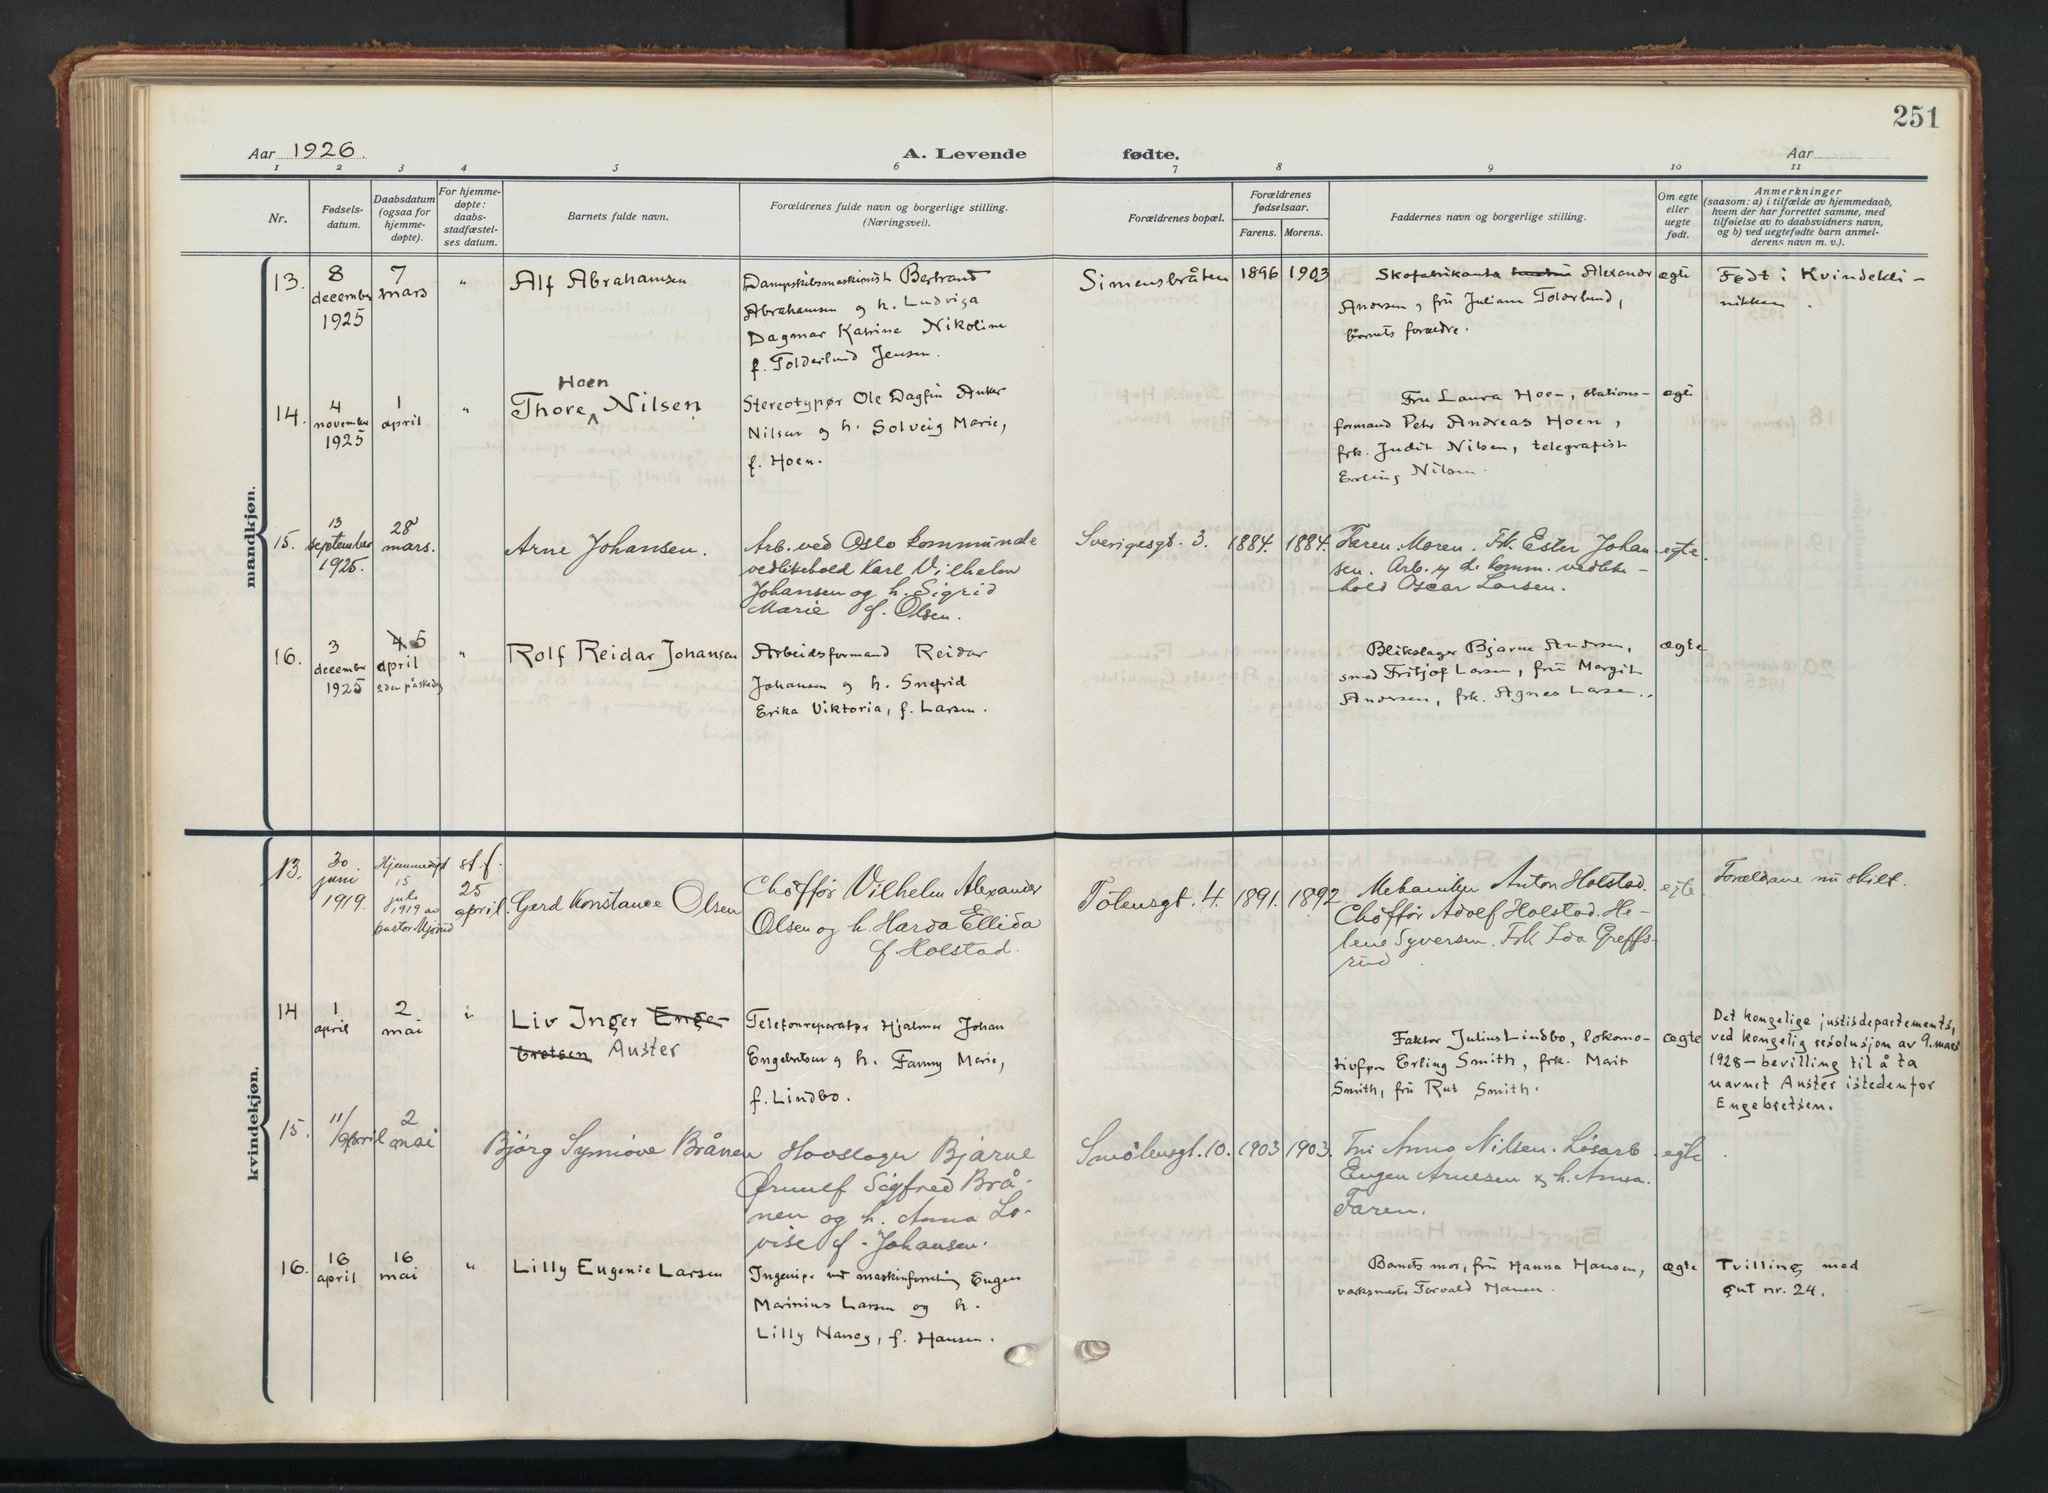 251
Aar 1926.
A. Levende
fødte.
Aar
1 2 3 4 5 6 7 8 9 10 11
Nr.
Fødsels-
datum.
Daabsdatum
(ogsaa for
hjemme-
døpte).
For hjemme-
døpte:
daabs-
stadfæstel-
ses datum.
Barnets fulde navn.
Forældrenes fulde navn og borgerlige stilling.
(Næringsvei).
Forældrenes bopæl.
Forældrenes
fødselsaar.
Farens. Morens.
Faddernes navn og borgerlige stilling.
Om egte
eller
uegte
født.
Anmerkninger
(saasom: a) i tilfælde av hjemmedaab,
hvem der har forrettet samme, med
tilføielse av to daabsvidners navn,
og b) ved uegtefødte barn anmel-
derens navn m. v.).
mandkjøn.
13.
8
december
1925
7
mars
"
Alf Abrahamsen
Dampskibsmaskinist Bertrand
Abrahamsen og h. Ludviga
Dagmar Katrine Nikoline
f. Tolderlund Jensen.
Simensbråten
1896
1903
Skofabrikant Alexander
Andersen, fru Juliane Tolderlund,
barnets forældre.
egte
Født i Kvindekli-
nikken.
14.
4
november
1925
1
april
"
Hoen
Thore Nilsen
Stereotypør Ole Dagfin Anker
Nilsen og h. Solveig Marie,
f. Hoen.
Fru Laura Hoen, stations-
formand Peter Andreas Hoen,
frk. Judit Nilsen, telegrafist
Erling Nilsen.
egte
15.
13
september
1925.
28
mars.
Arne Johansen.
Arb. ved Oslo kommunde
vedlikehold Karl Vilhelm
Johansen og h. Sigrid
Marie f. Olsen.
Sverigesgt. 3.
1884.
1884.
Faren. Moren. Frk. Ester Johan
sen. Arb. v. d. komm. vedlike-
hold Oscar Larsen.
egte.
16.
3
december
1925
4 5
april
2den påskedag
"
Rolf Reidar Johansen
Arbeidsformand Reidar
Johansen og h. Snefrid
Erika Viktoria, f. Larsen.
Blikslager Bjarne Andersen,
smed Fritjof Larsen, fru Margit
Andersen, frk. Agnes Larsen.
ægte
kvindekjøn.
13.
30
juni
1919.
Hjemmedøpt
15
juli
1919 av
pastor
st. f.
25
april.
Gerd Konstance Olsen
Chøffør Vilhelm Alexander
Olsen og h. Harda Ellida
f. Holstad.
Totensgt. 4.
1891.
1892.
Mekaniker Anton Holstad.
Chøffør Adolf Holstad. He-
lene Syversen. Frk Ida Greffs-
rud.
egte
Forældrene nu skilt.
14
1
april
2
mai
"
Liv Inger Enge-
bretsen Auster
Telefonreparatør Hjalmar Johan
Engebretsen og h. Fanny Marie,
f. Lindbo.
Faktor Julius Lindbo, lokomo-
tivfører Erling Smith, frk. Marit
Smith, fru Rut Smith.
ægte
Det kongelige justisdepartements,
ved kongelig resolusjon av 9. mars
1928 – bevilling til å ta
navnet Auster istedenfor
Engebretsen.
15.
11/
april
2
mai
Bjørg Synnøve Brånen
Hovslager Bjarne
Ørnulf Sigfred Brå-
nen og h. Anna Lo-
vise f. Johansen.
Smålensgt. 10.
1903
1903.
Fru Anna Nilsen. Løsarb.
Eugen Arnesen & h. Anna.
Faren.
egte
16.
16
april
16
mai
"
Lilly Eugenie Larsen
Ingeniør ved maskinforretning Eugen
Marinius Larsen og h.
Lilly Nancy, f. Hansen.
Barnets mor, fru Hanna Hansen,
verksmester Torvald Hansen.
ægte
Tvilling med
gut nr. 24.